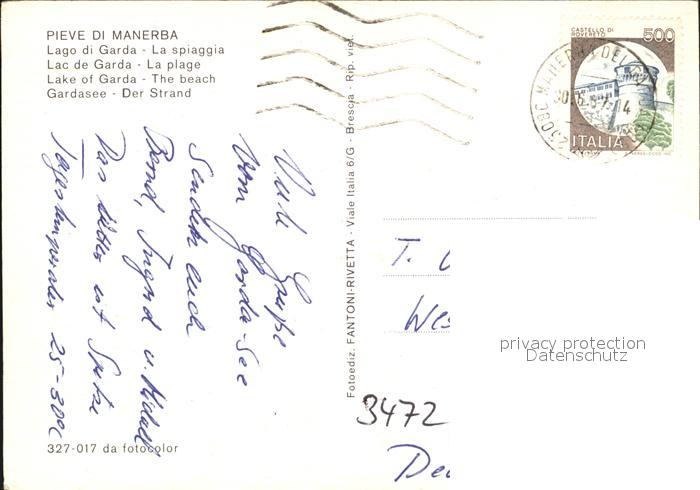 PIEVE DI MANERBA
Lago di Garda - La spiaggia
Lac de Garda - La plage
Lake of Garda - The beach
Gardasee - Der Strand
Viele Grüße
vom Garda-See
senden euch
Bernd, Ingrid u. Michael
Das Wetter ist Spitze
Tagestemperatur 25-30°C
327-017 da fotocolor
Fotoediz. FANTONI-RIVETTA - Viale Italia 6/G - Brescia - Rip. viet.
CASTELLO DI
ROVERETO
500
ITALIA
T.
Wes
3472
De
privacy protection
Datenschutz